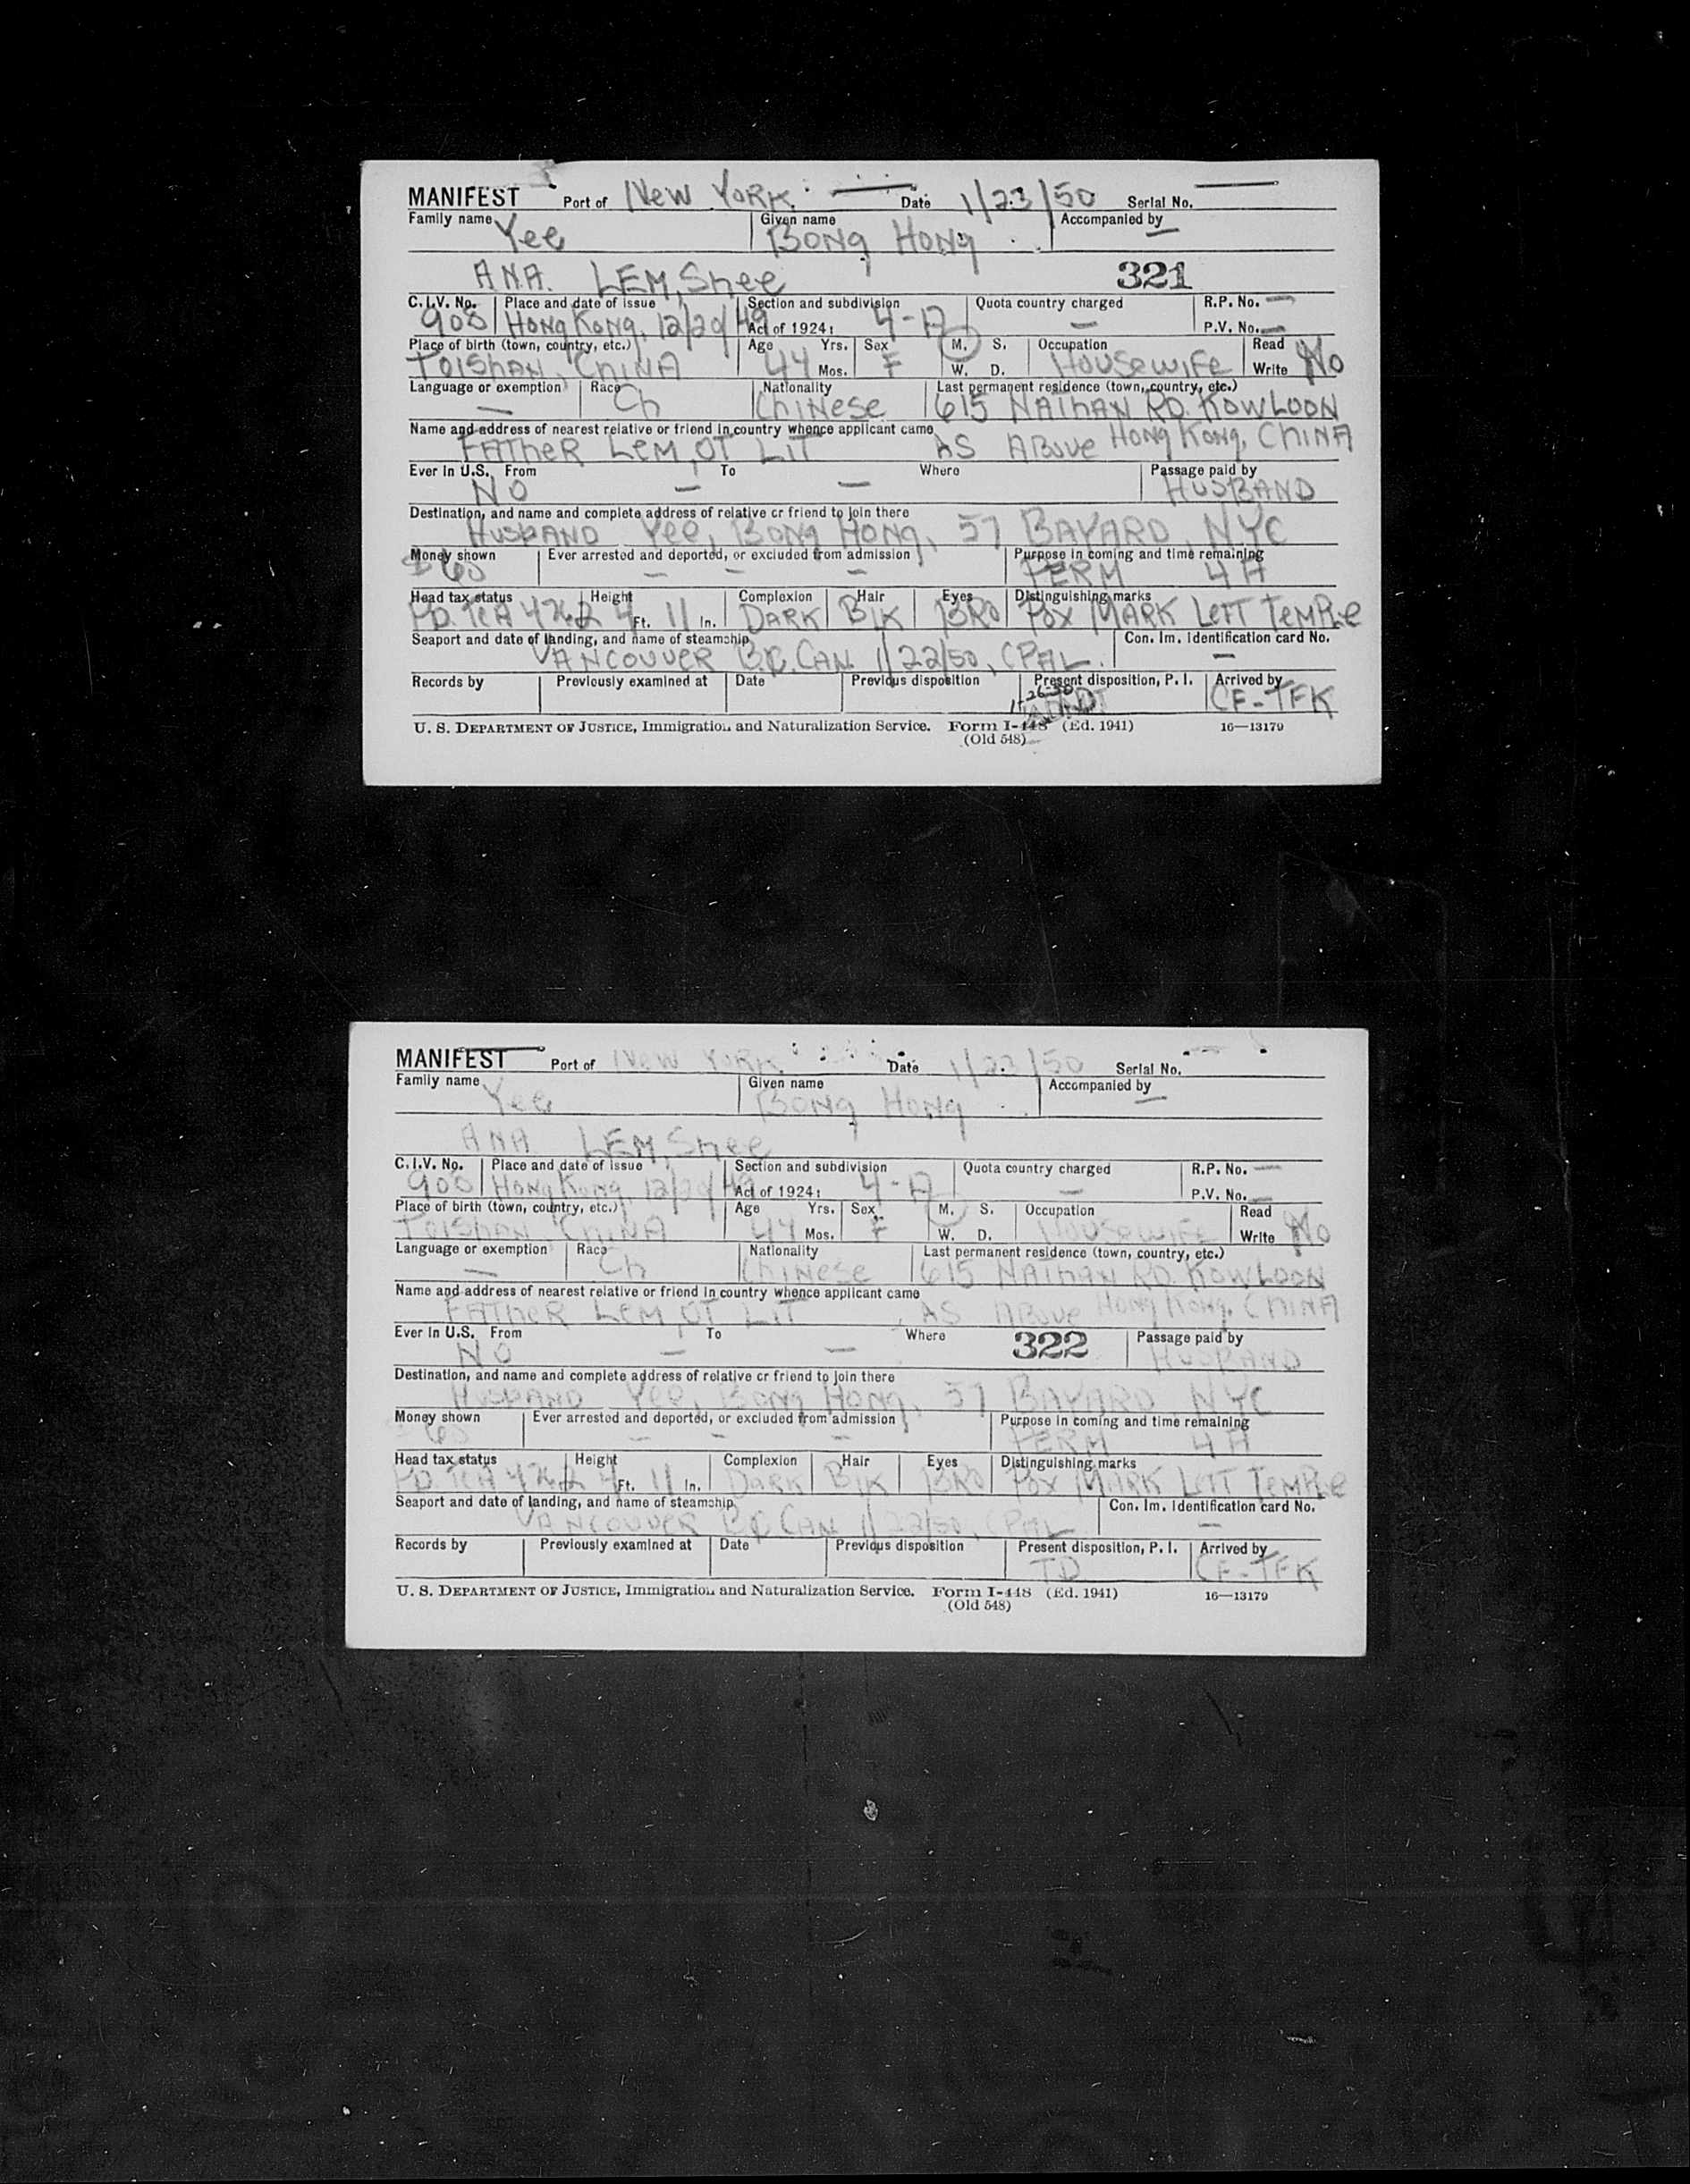 MANIFEST Port of New York. Date 1/23/50 Serial No. —
Family name Yee Given name Bong Hong Accompanied by —
ANA. LEM, Shee 321
C.I.V. No. Place and date of issue Section and subdivision Quota country charged R.P. No. —
908 Hong Kong, 12/20/49 Act of 1924: 4-A — P.V. No. —
Place of birth (town, country, etc.) Age Yrs. Sex M. S. Occupation Read
Toishan, China 44 Mos. F W. D. Housewife Write No
Language or exemption Race Nationality Last permanent residence (town, country, etc.)
— Ch Chinese 615 Nathan Rd. Kowloon
Name and address of nearest relative or friend in country whence applicant came
Father Lem, Ot Lit As Above Hong Kong, China
Ever in U.S. From To Where Passage paid by
No — — Husband
Destination, and name and complete address of relative or friend to join there
Husband Yee, Bong Hong, 57 Bayard, NYC
Money shown Ever arrested and deported, or excluded from admission Purpose in coming and time remaining
— — — Perm 4A
Head tax status Height Complexion Hair Eyes Distinguishing marks
4 Ft. 11 In. Dark Blk Bro Pox Mark Left Temple
Seaport and date of landing, and name of steamship Con. Im. Identification card No.
Vancouver B.C. Can. 1/22/50, CPAL. —
Records by Previously examined at Date Previous disposition Present disposition, P. I. Arrived by
CF-TFK
U. S. Department of Justice, Immigration and Naturalization Service. Form I-448 (Ed. 1941) 16—13179
(Old 548)
MANIFEST Port of New York. Date 1/23/50 Serial No. —
Family name Yee Given name Bong Hong Accompanied by —
ANA LEM, Shee
C.I.V. No. Place and date of issue Section and subdivision Quota country charged R.P. No. —
908 Hong Kong, 12/20/49 Act of 1924: 4-A — P.V. No. —
Place of birth (town, country, etc.) Age Yrs. Sex M. S. Occupation Read
Toishan, China 44 Mos. F W. D. Housewife Write No
Language or exemption Race Nationality Last permanent residence (town, country, etc.)
— Ch Chinese 615 Nathan Rd. Kowloon
Name and address of nearest relative or friend in country whence applicant came
Father Lem, Ot Lit As Above Hong Kong, China
Ever in U.S. From To Where 322 Passage paid by
No — — Husband
Destination, and name and complete address of relative or friend to join there
Husband Yee, Bong Hong, 57 Bayard, NYC
Money shown Ever arrested and deported, or excluded from admission Purpose in coming and time remaining
— — — Perm 4A
Head tax status Height Complexion Hair Eyes Distinguishing marks
4 Ft. 11 In. Dark Blk Bro Pox Mark Left Temple
Seaport and date of landing, and name of steamship Con. Im. Identification card No.
Vancouver B.C. Can 1/22/50, CPAL —
Records by Previously examined at Date Previous disposition Present disposition, P. I. Arrived by
TD CF-TFK
U. S. Department of Justice, Immigration and Naturalization Service. Form I-448 (Ed. 1941) 16—13179
(Old 548)